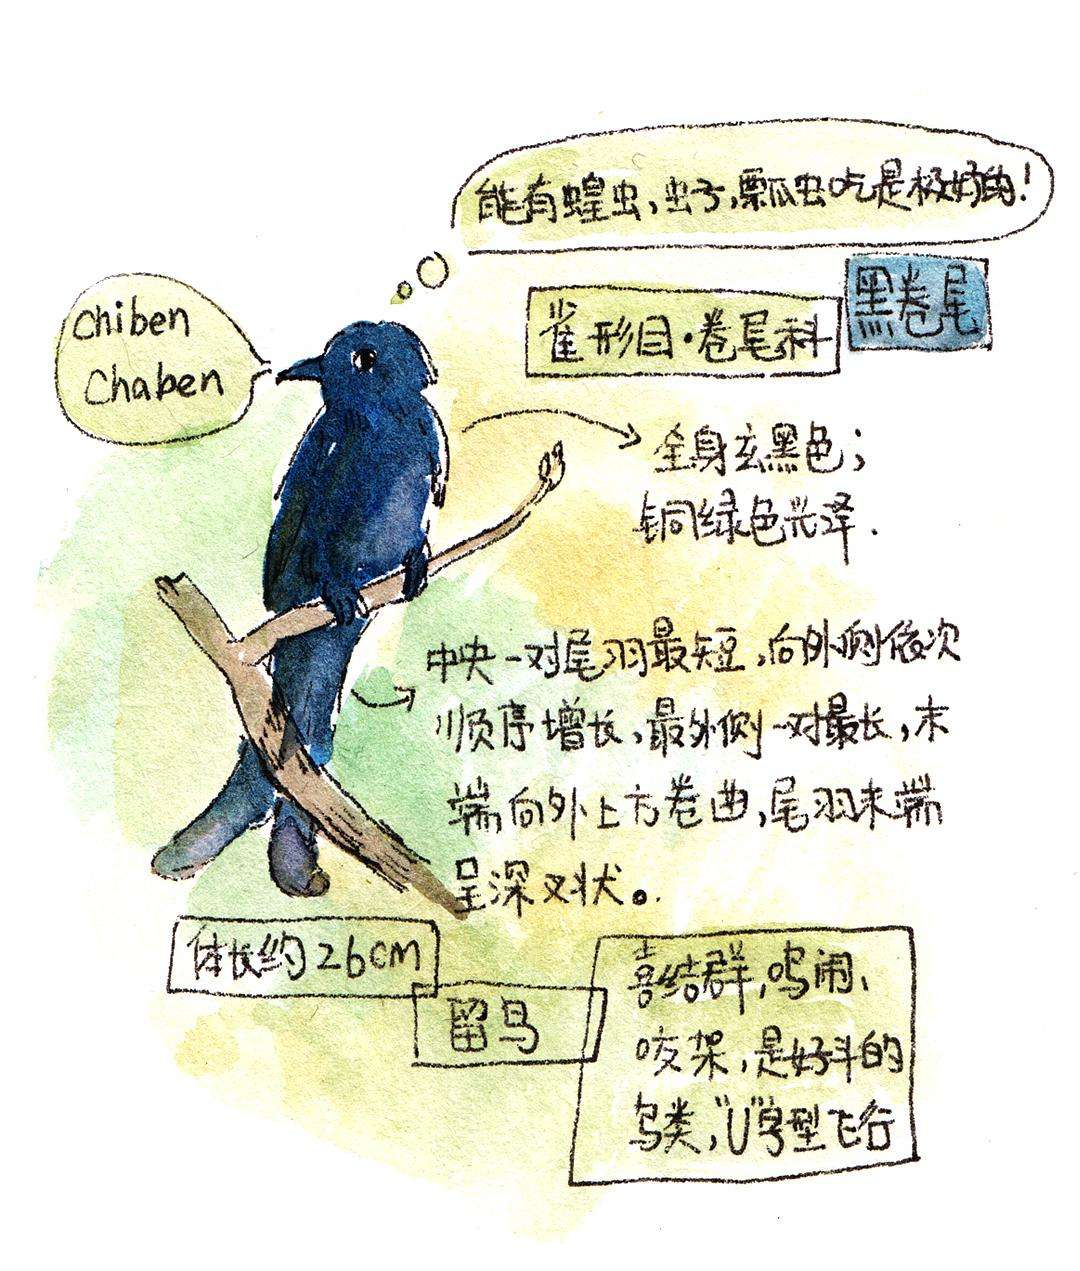 能有蝗虫,虫子,瓢瓜虫吃是极好的!
黑卷尾
雀形目·卷尾科
chiben
Chaben
全身玄黑色;
铜绿色光泽.
中央一对尾羽最短,向外侧依次
顺序增长,最外侧一对最长,末
端向外上方卷曲,尾羽末端
呈深叉状。
体长约26cm
留鸟
喜结群,鸣闹、
咬架,是好斗的
鸟类,"U"字型飞行